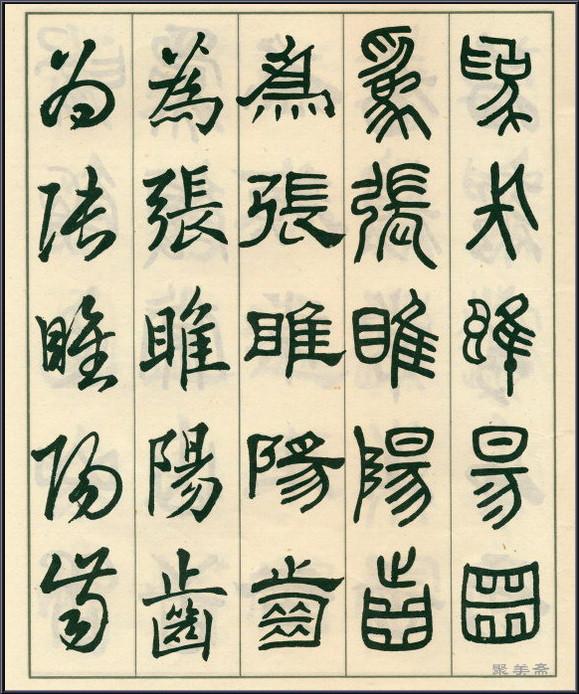 為長睢昜齒
為張睢陽齒
為張睢陽齒
為張睢陽齒
為張睢陽齒
聚美斋